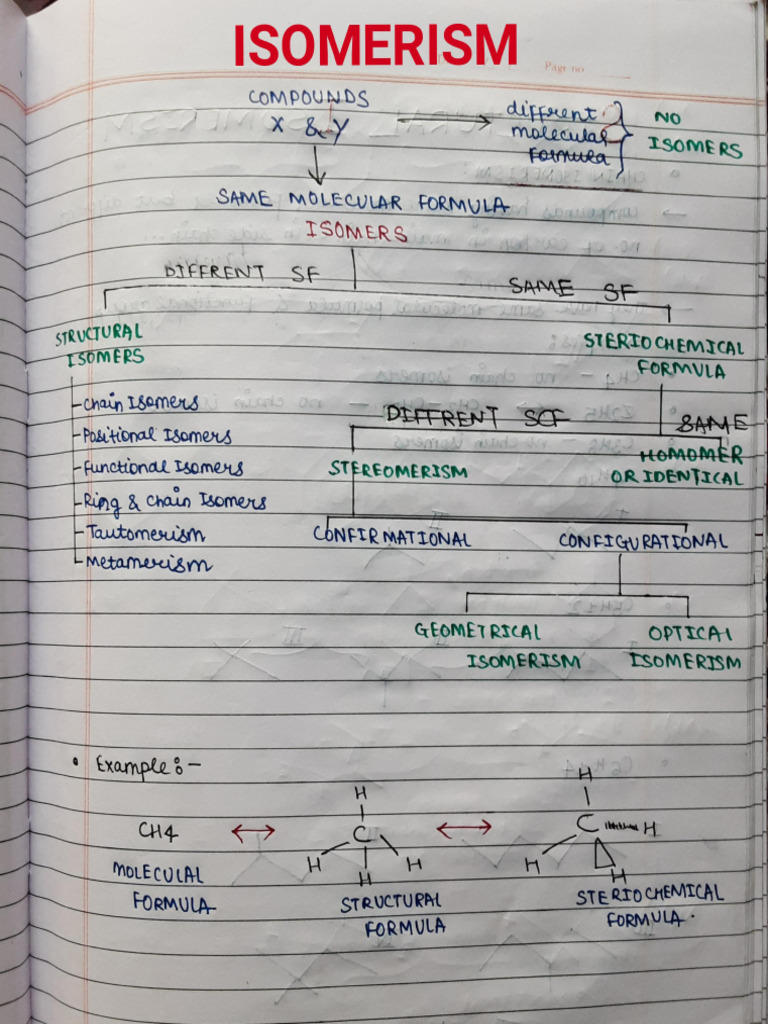 ISOMERISM
Page no
COMPOUNDS
X & Y
diffrent
molecular
formula
NO
ISOMERS
SAME MOLECULAR FORMULA
ISOMERS
DIFFRENT SF
SAME SF
STRUCTURAL
ISOMERS
STERIOCHEMICAL
FORMULA
Chain Isomers
Positional Isomers
Functional Isomers
Ring & Chain Isomers
Tautomerism
Metamerism
DIFFRENT SCF
SAME
STEREOMERISM
HOMOMER
OR IDENTICAL
CONFIRMATIONAL
CONFIGURATIONAL
GEOMETRICAL
ISOMERISM
OPTICAL
ISOMERISM
• Example :-
H
H
CH4
C
C
H
H
H
H
H
H
MOLECULAL
FORMULA
STRUCTURAL
FORMULA
STERIOCHEMICAL
FORMULA.